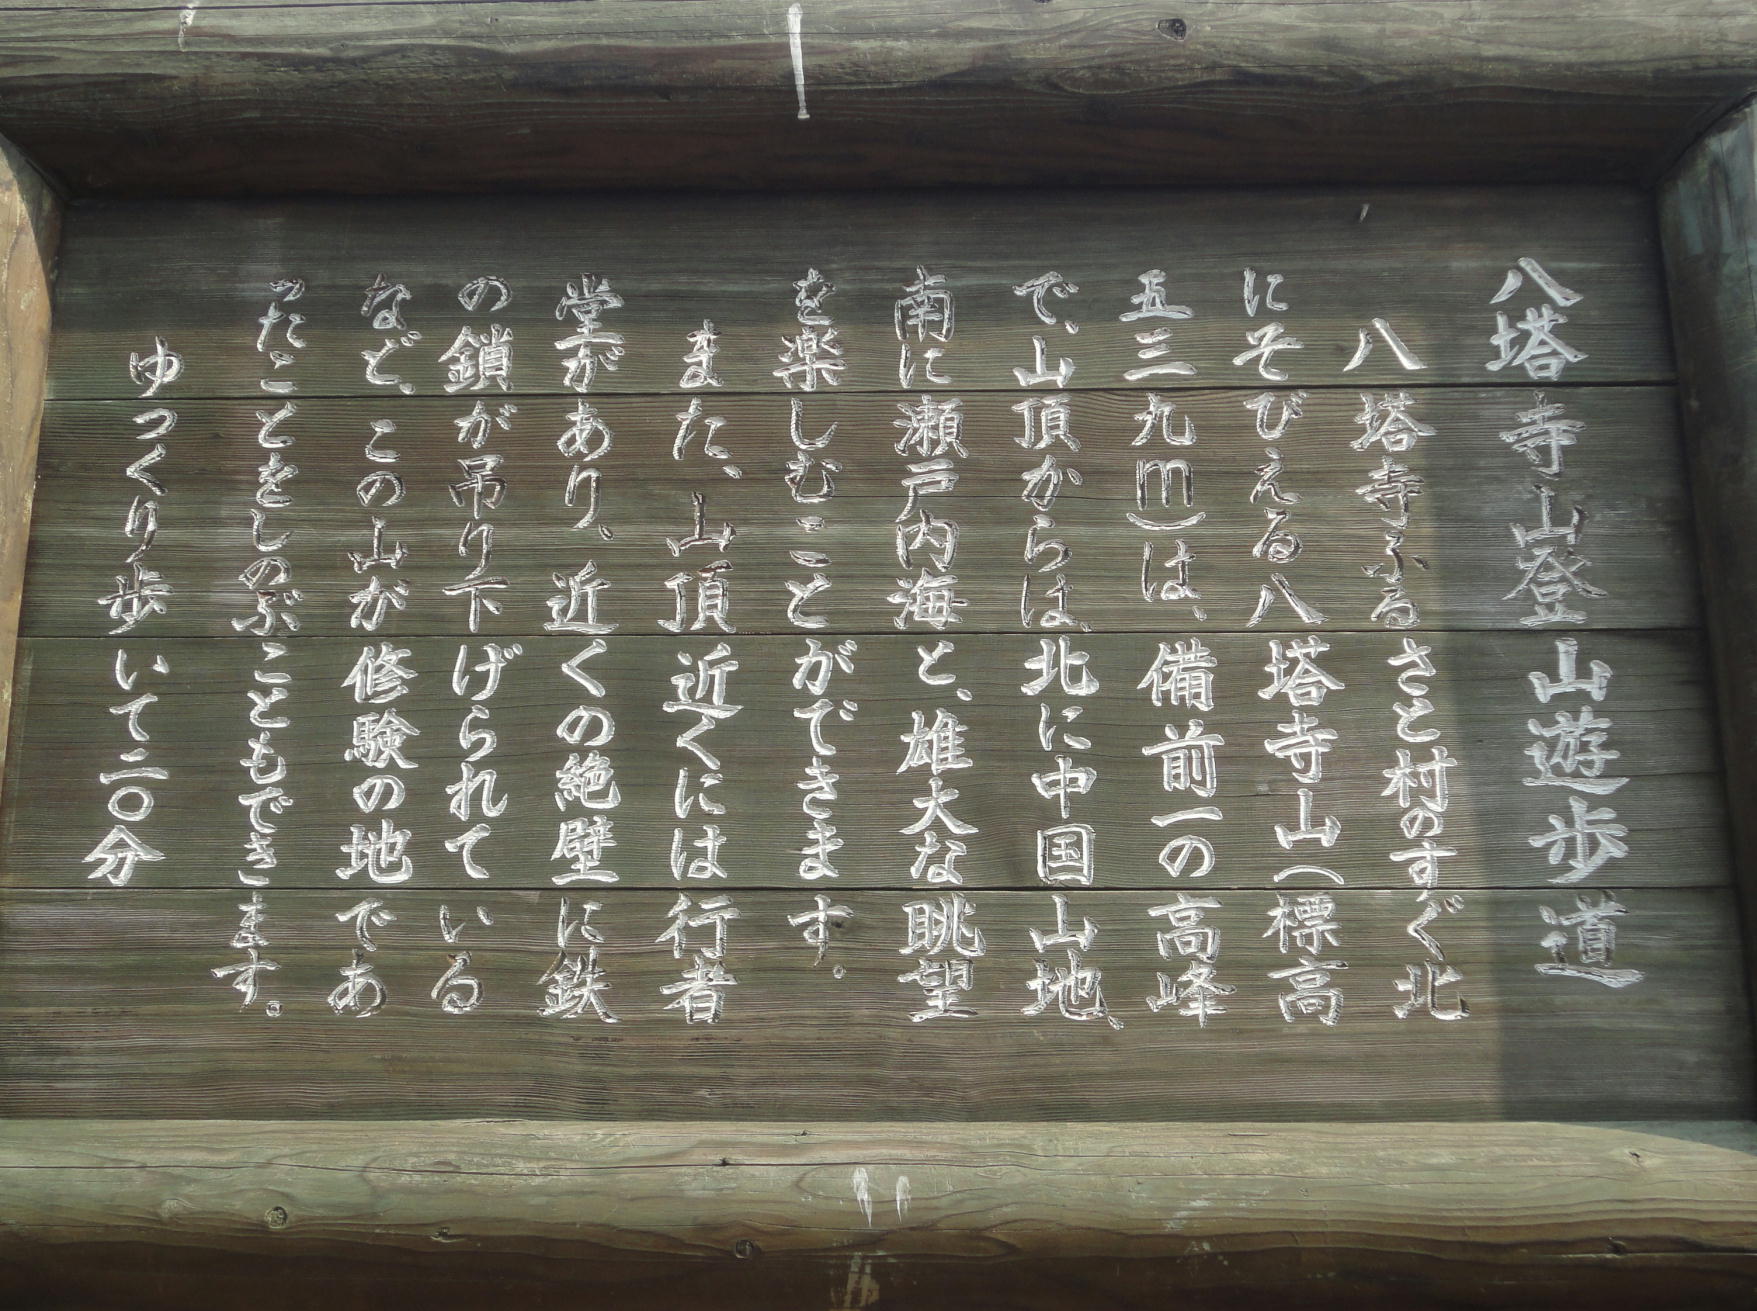 八塔寺山登山遊歩道
八塔寺ふるさと村のすぐ北
にそびえる八塔寺山(標高
五三九m)は、備前一の高峰
で、山頂からは、北に中国山地、
南に瀬戸内海と、雄大な眺望
を楽しむことができます。
また、山頂近くには行者
堂があり、近くの絶壁に鉄
の鎖が吊り下げられている
など、この山が修験の地であ
ったことをしのぶこともできます。
ゆっくり歩いて二〇分